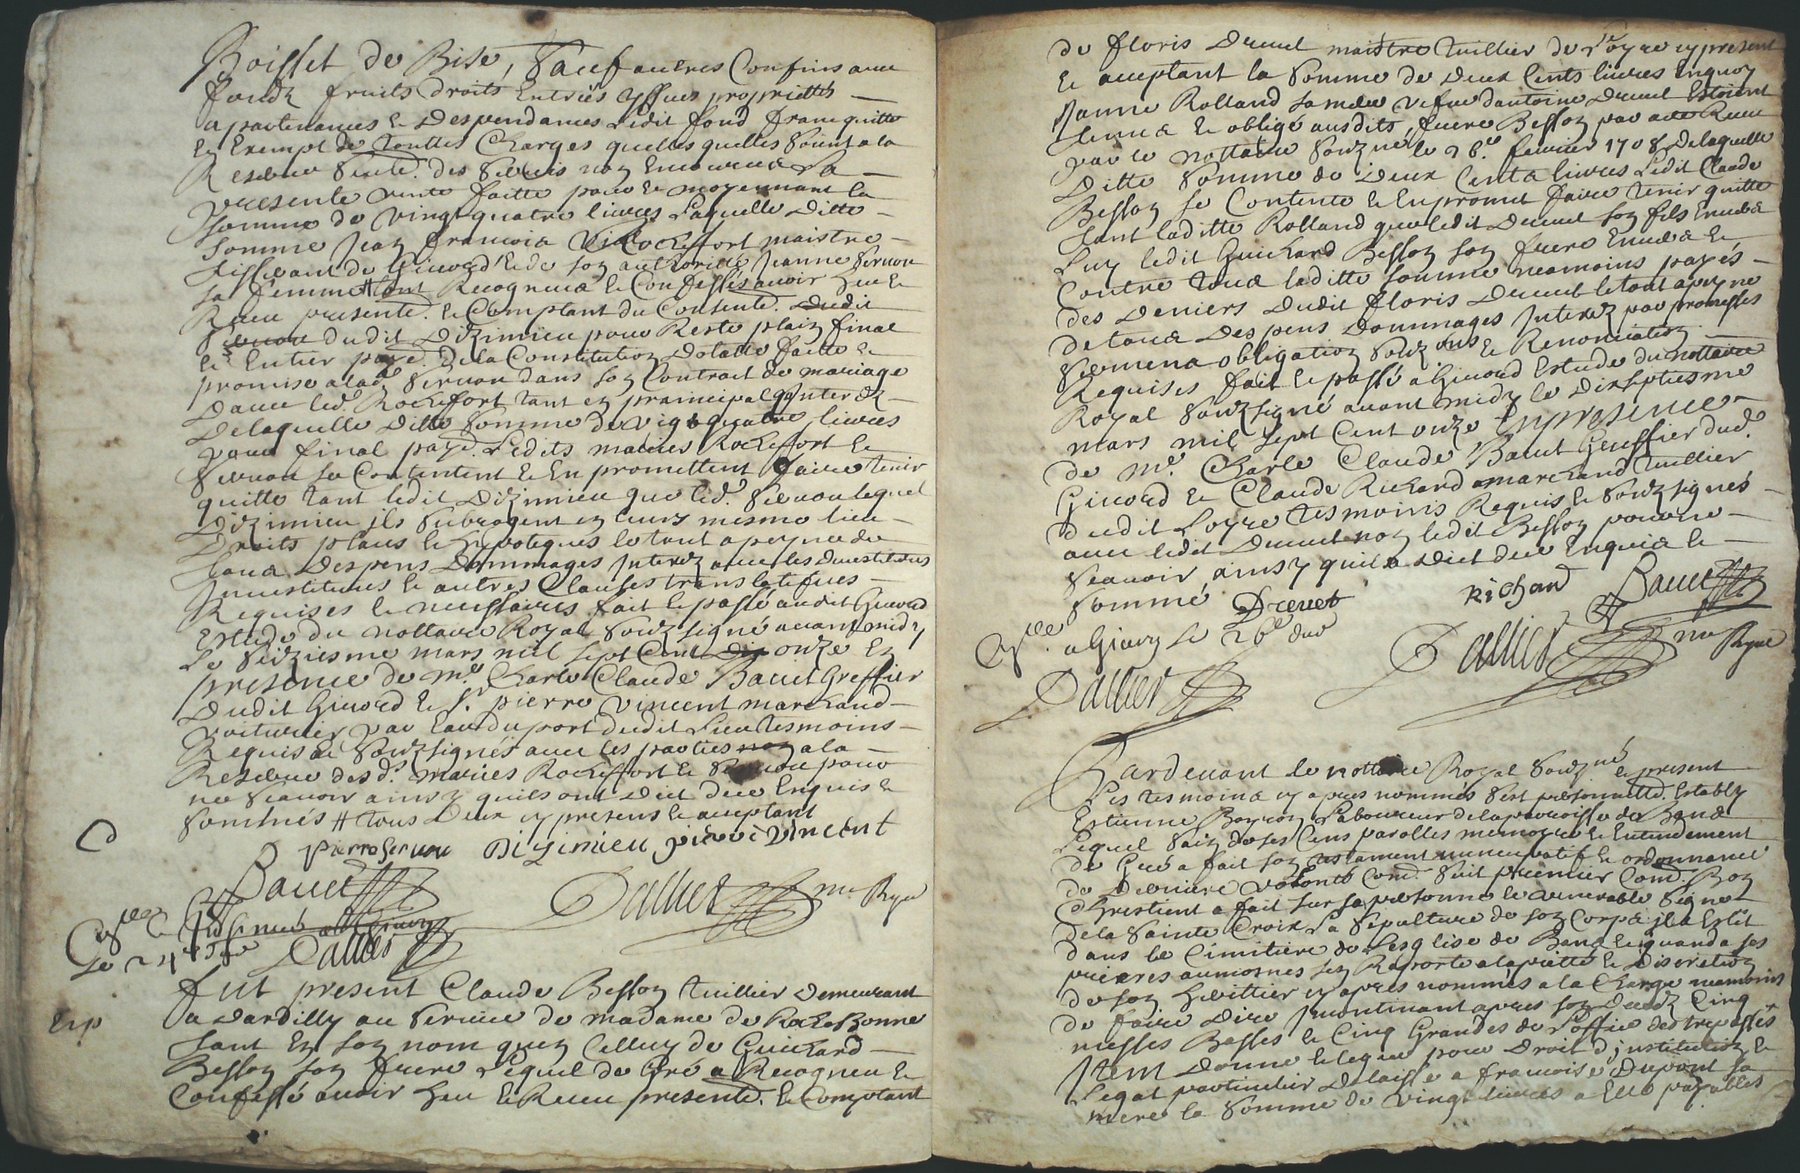 Boisset de Bise, Sauf autres Confins avec
fonds fruits droits Entrées yssues proprietes
apartenances & Despendances Ledit fond franc quitte
Et Exempt de touttes Charges quelles quelles soint a la
Reserve des Servis non La
presente vente faitte pour & moyennant la
somme de vingt quatre livres Laquelle Ditte
somme Jean francois Rochefort maistre
de Givord & de son authorité Jeanne Servon
sa femme # ont Recogneus & Confessés avoir heu &
Receu presente. & Comptant du Consente. dudit
Servon dudit Dizimieu pour Reste plain final
& Entier paye. de la Constitution Dotalle faitte &
promise a lad. Servon dans son Contrat de mariage
Davec led. Rochefort tant en principal qu'interets
De laquelle Ditte somme de vingt quatre livres
pour final paye. Lesdits mariés Rochefort &
Servon se Contentent & En promettent faire tenir
quitte tant ledit Dizimieu que led. Servon lequel
Dizimieu ils subrogent en leurs mesme lieu
Droits place & hypoteques le tout a peyne de
tous Despens Dommages Interez avec les Devestitures
Investitures & autres Clauses translatifves
Requises & necessaires fait & passé audit Givord
Estude du nottaire Royal souzsigné avant midy
Le seiziesme mars mil sept Cent dix onze En
presence de me. Charle Claude Bavet Greffier
Dudit Givord & Sr. pierre Vincent marchand
voiturier par eau du port dudit Lieu tesmoins
Requis & souzsignés avec les parties non a la
Reserve desd. mariés Rochefort & Servon pour
ne scavoir ainsy quils ont dict de ce Enquis &
sommés # tous Deux cy presens & acceptant
pierre servon Dizimieu pierre vincent
Bavet
Dallier nre Royal
Le 24
Dallier
fut present Claude Besson tuillier Demeurant
a Dardilly au service de madame de Rochebonne
tant En son nom que Celluy de Guichard
Besson son frere Lequel de Gré a Recogneu &
Confessé avoir heu & Receu presente. & Comptant
de floris Drevet maistre tuillier de Loyre cy present
& acceptant la somme de deux Cents livres Enquoy
Janne Rolland sa mere vefve d'antoine Drevet Estoient
tenus & obligé ausdits frere Besson par acte Receu
par le nottaire souzne le 26e. fevrier 1708 De laquelle
Ditte somme de Deux Cents livres Ledit Claude
Besson se Contente & En promet faire tenir quitte
tant laditte Rolland que ledit Drevet son fils Envers
Luy ledit Guichard Besson son frere Envers &
Contre tous laditte somme neamoins payés
des Deniers Dudit floris Drevet le tout a peyne
de tous Despens Dommages Interez par promesses
serment obligation & Renonciation
Requises fait & passé a Givord Estude du nottaire
Royal souzsigné avant midy le Dixseptiesme
mars mil sept Cent onze En presence
de me. Charle Claude Bavet Greffier dud.
Givord & Claude Richard marchand tuillier
dudit Loyre tesmoins Requis & souzsignés
avec ledit Drevet non ledit Besson pour ne
scavoir ainsy quil a dict de ce Enquis &
sommé
Drevet Richard Bavet
a Givors Le 26e dud
Dallier Dallier nre Royal
Pardevant Le nottaire Royal souzné
& present
Les tesmoins cy apres nommés s'est personnelle. Estably
Estienne Laboureur de la parroisse de Bans
Lequel sain de ses Cens parolles memoyre & Entendement
de Gré a fait son testament nuncupatif & ordonnance
de Derniere volonté Come suit premier Come Bon
Chrestient a fait sur sa personne le venerable signe
de la Sainte Croix La sepulture de son Corps il a Eslit
dans le Cimitiere de Lesglise de Bans & quand a ses
prieres aumosnes s'En Raporte a la pietté & Discretion
de son herittier cy apres nommés a la Charge neamoins
de faire Dire Incontinant apres son Decez Cinq
messes Basses & Cinq Grandes de L'office des trepassés
Item Donne & legue pour Droit d'institution &
Legat particulier Delaisse a francoise Dupont sa
mere la somme de vingt livres a Elle payables